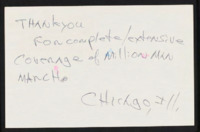 THANK you
For complete/extensive
Coverage of Million Man
MARCH
CHICAGO, Ill,